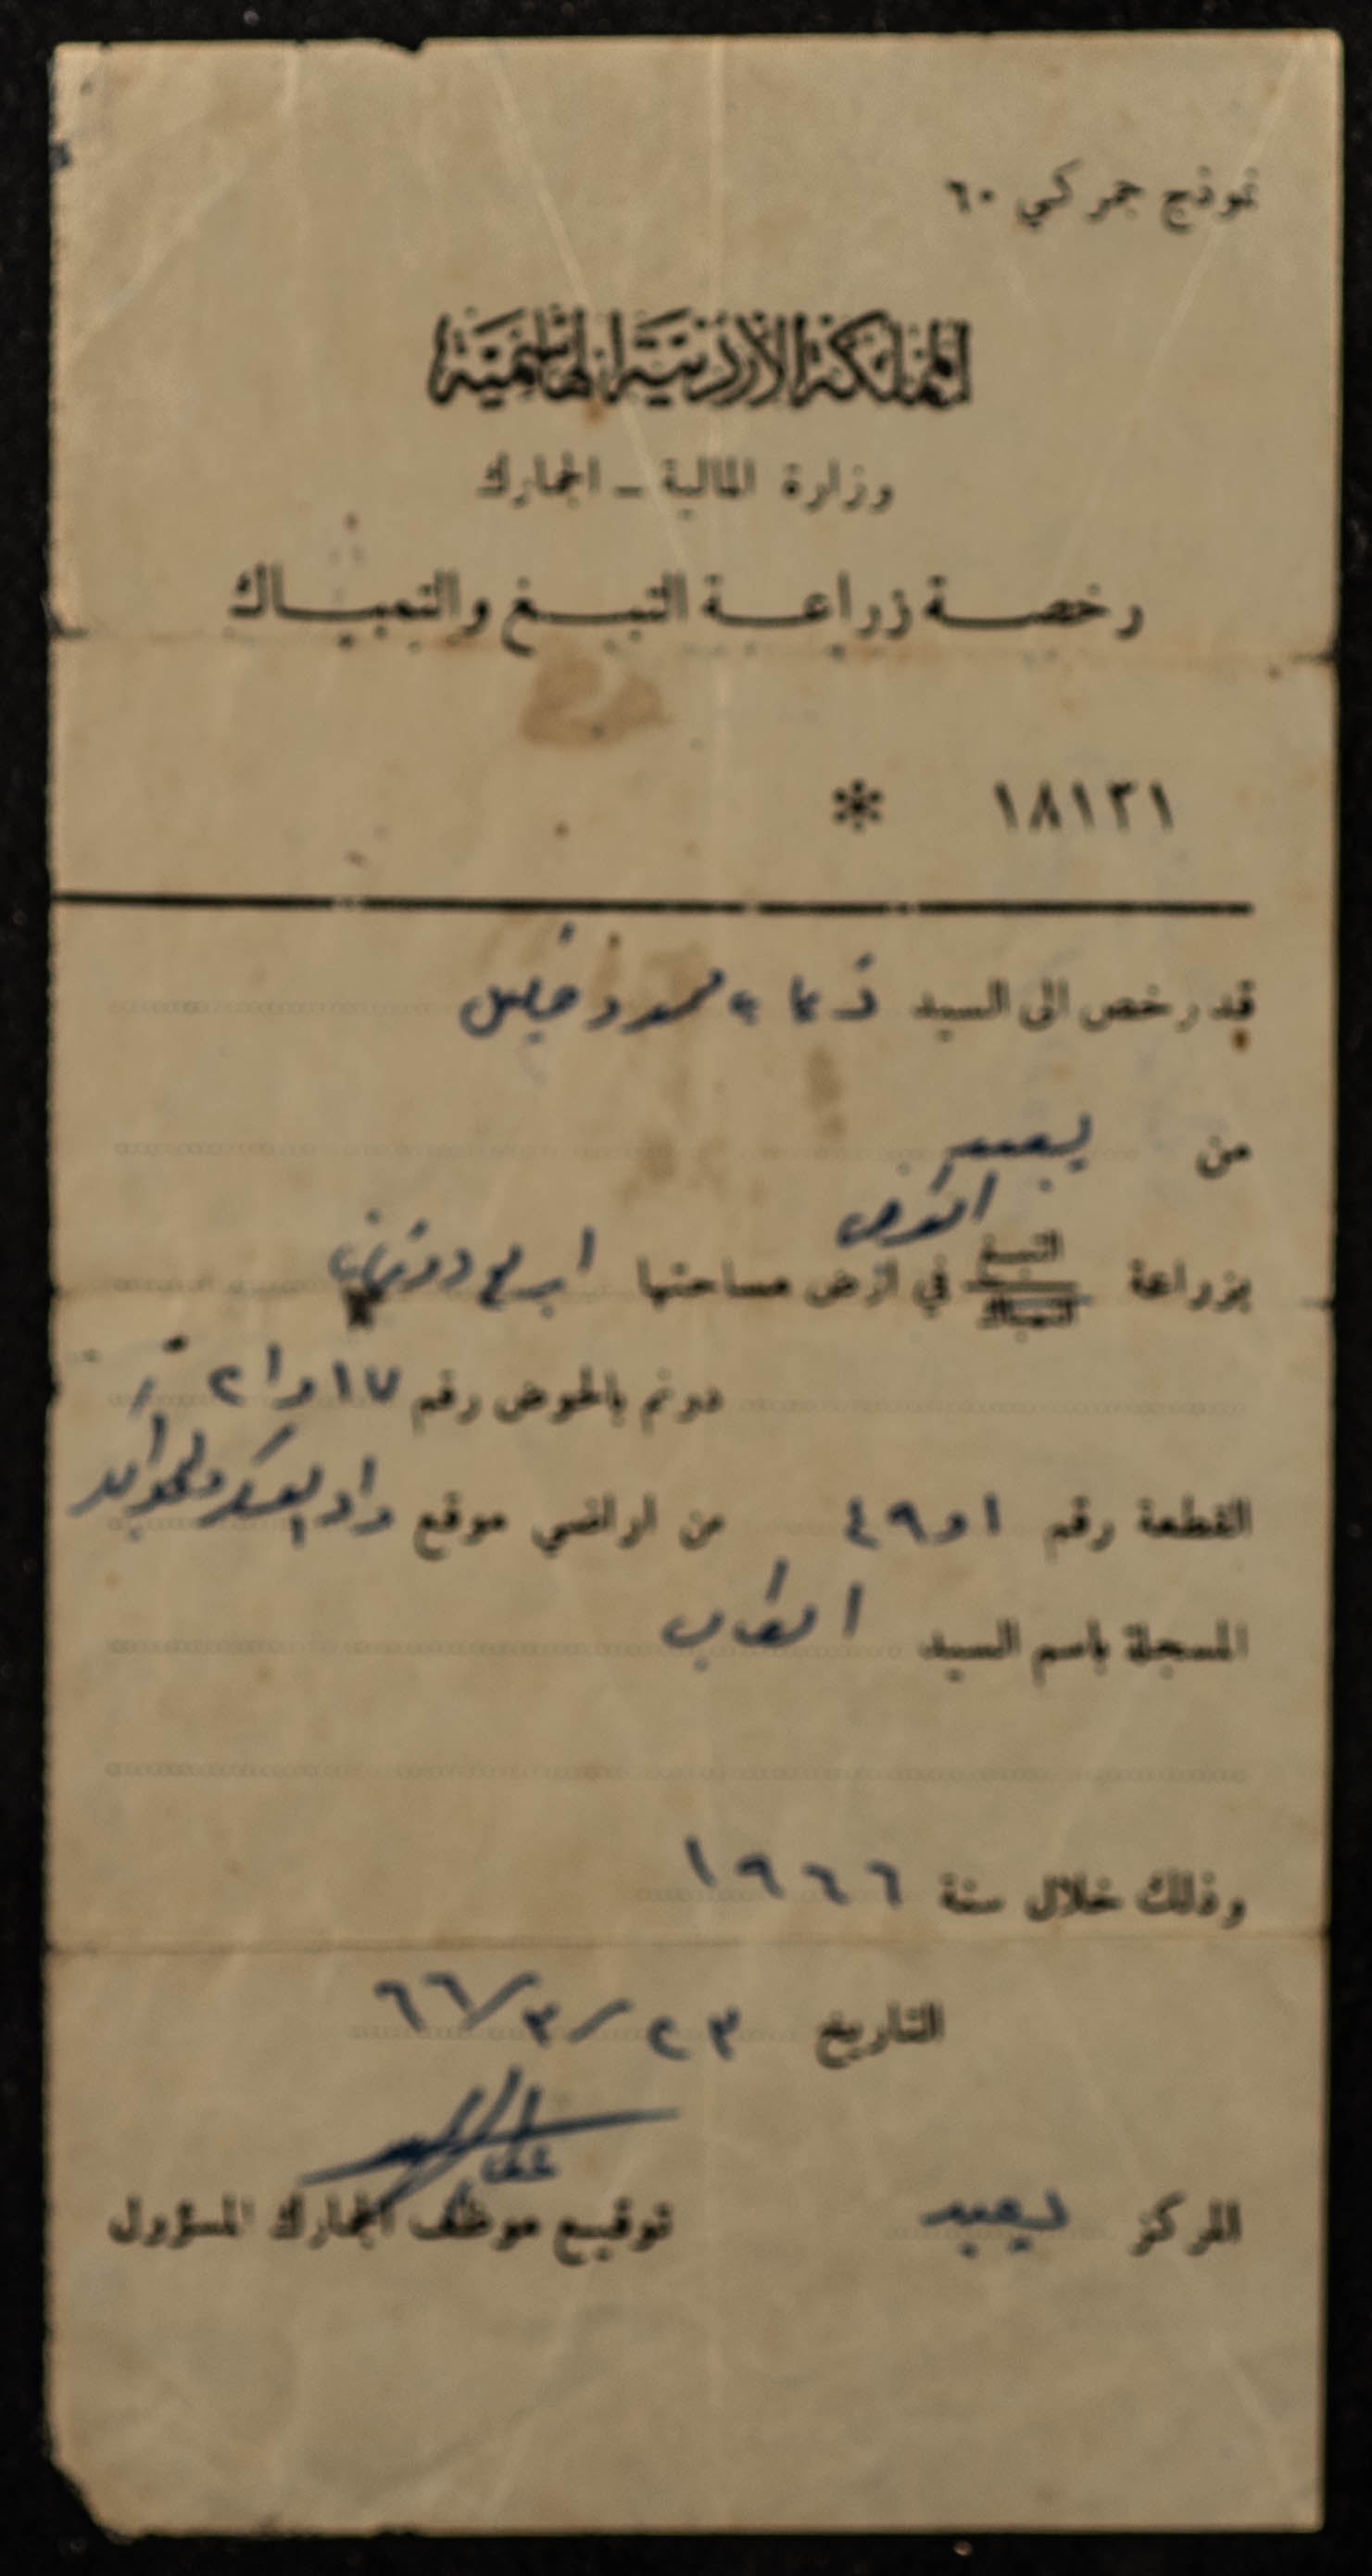 نموذج جمركي ٦٠
المملكة الأردنية الهاشمية
وزارة المالية - الجمارك
رخصة زراعة التبغ والتمباك
١٨١٣١ *
قد رخص الى السيد محمود خليل
من يعبد
بزراعة التبغ التمباك في ارض مساحتها اربع دونمات
دونم بالحوض رقم ١٧ و ٢١
القطعة رقم ١ و ٤٩ من اراضي موقع
المسجلة باسم السيد الطالب
وذلك خلال سنة ١٩٦٦
التاريخ ٢٣/٣/٦٦
المركز يعبد توقيع موظف الجمارك المسؤول